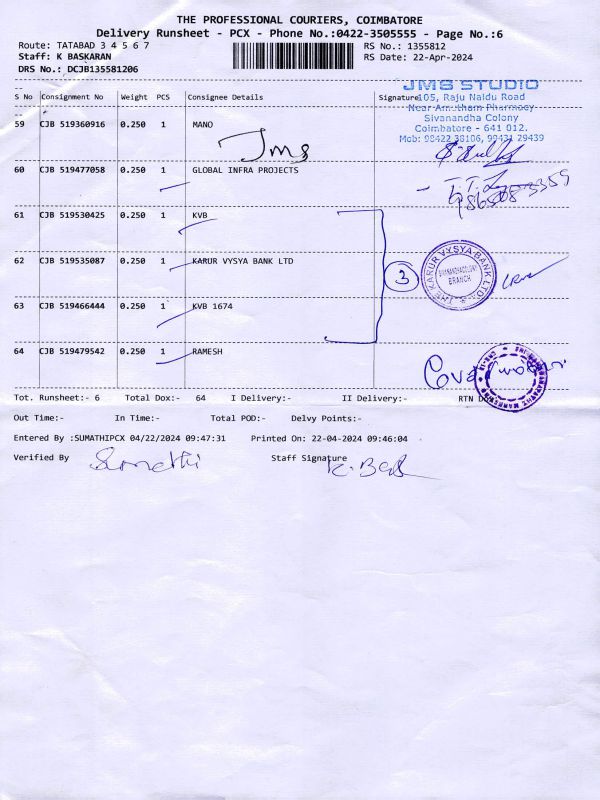 THE PROFESSIONAL COURIERS, COIMBATORE
Delivery Runsheet - PCX - Phone No.:0422-3505555 - Page No.:6
Route: TATABAD 3 4 5 6 7
RS No.: 1355812
Staff: K BASKARAN
RS Date: 22-Apr-2024
DRS No.: DCJB135581206
S No Consignment No Weight PCS Consignee Details Signature
JMS STUDIO
105, Raju Naidu Road
Near Amutham Pharmacy
Sivanandha Colony
Coimbatore - 641 012.
Mob: 98422 38106, 99431 29439
59 CJB 519360916 0.250 1 MANO
Jms
60 CJB 519477058 0.250 1 GLOBAL INFRA PROJECTS
61 CJB 519530425 0.250 1 KVB
62 CJB 519535087 0.250 1 KARUR VYSYA BANK LTD
3
THE KARUR VYSYA BANK LTD.
SIVANANDHACOLONY
BRANCH
63 CJB 519466444 0.250 1 KVB 1674
64 CJB 519479542 0.250 1 RAMESH
Tot. Runsheet:- 6 Total Dox:- 64 I Delivery:- II Delivery:- RTN
Out Time:- In Time:- Total POD:- Delvy Points:-
Entered By :SUMATHIPCX 04/22/2024 09:47:31 Printed On: 22-04-2024 09:46:04
Verified By Sumathi Staff Signature